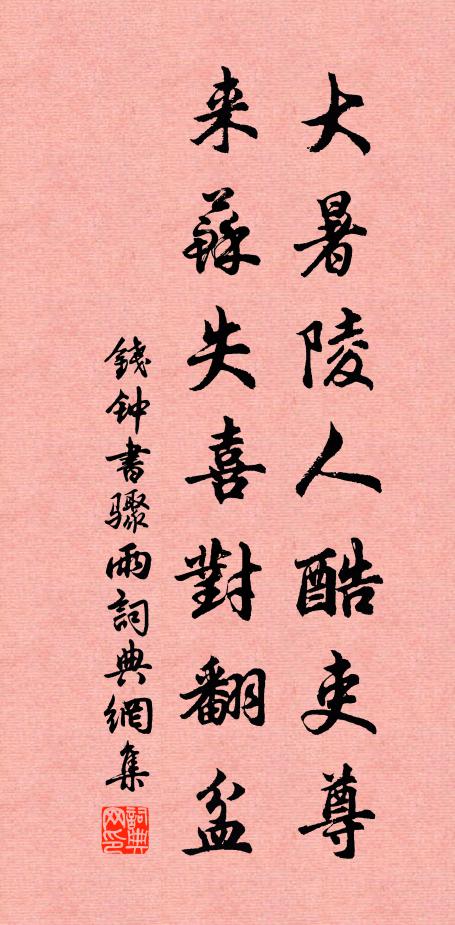 大暑陵人酷吏尊
来蘇失喜對翻盆
錢钟書驟雨詞典網集
詞典网印